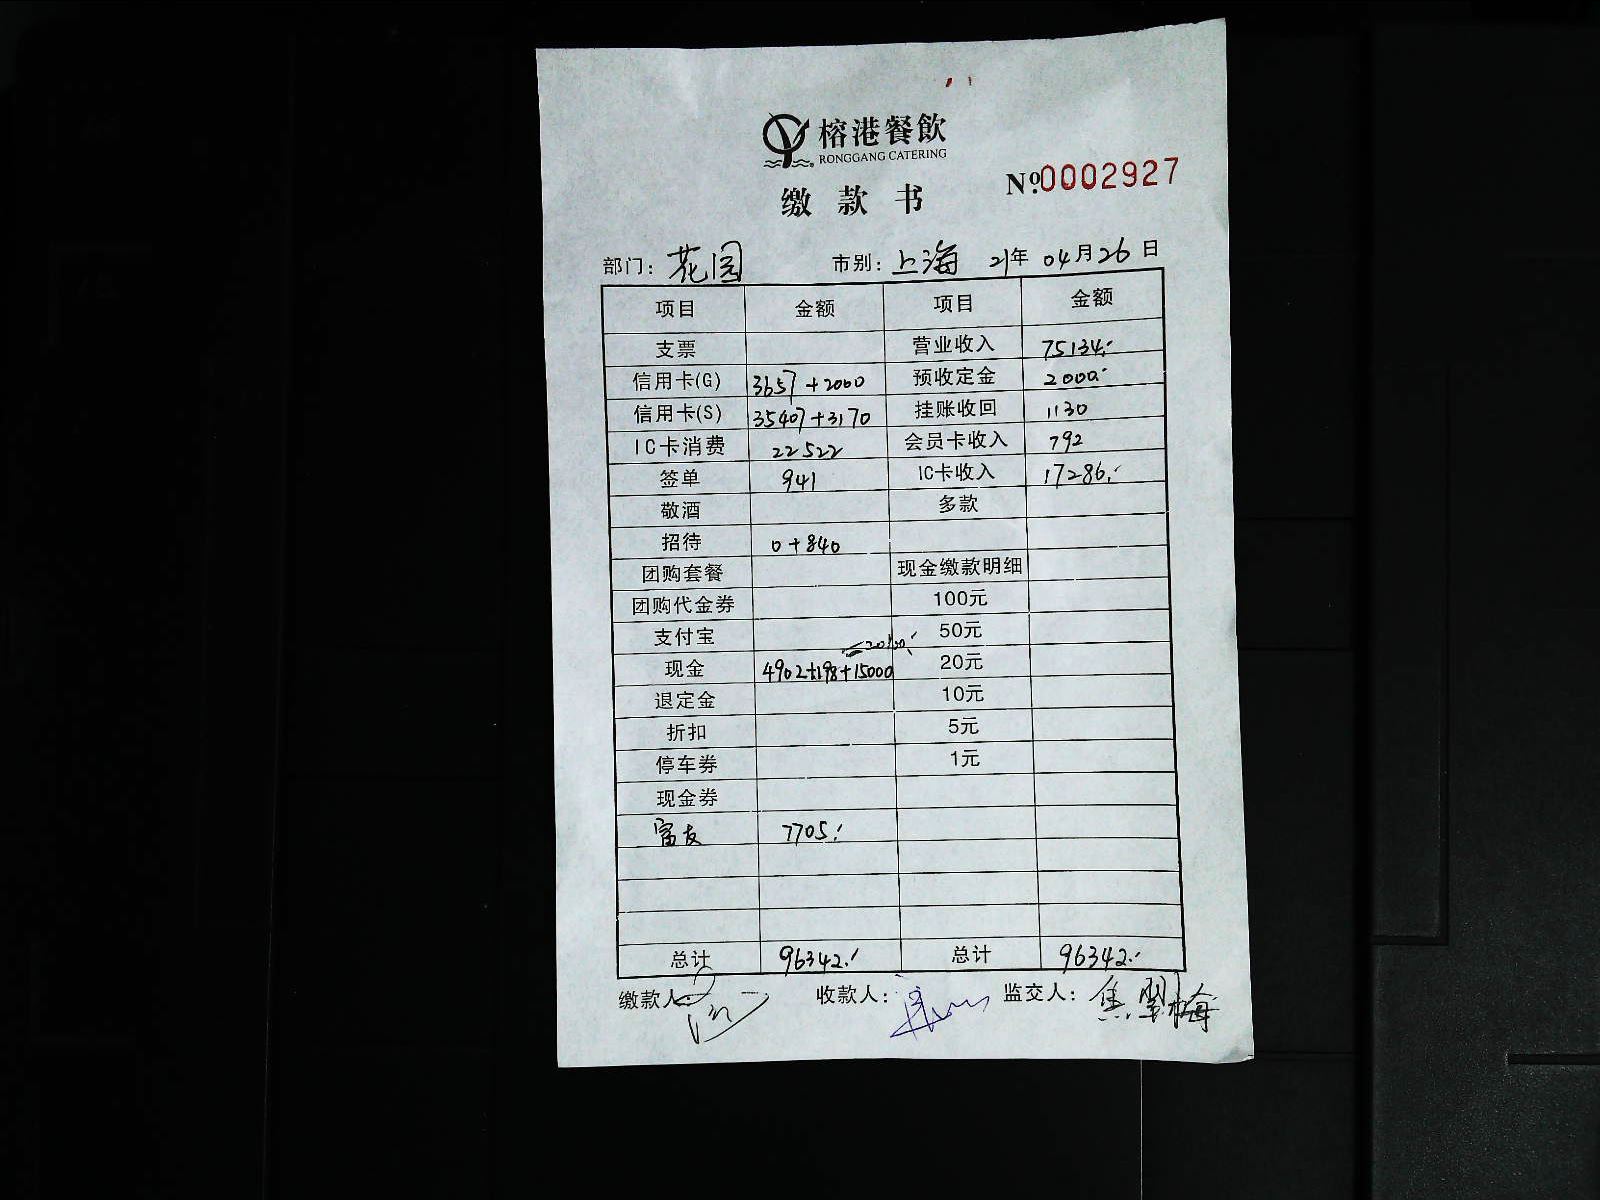 榕港餐飲
RONGGANG CATERING
缴款书
№.0002927
部门：花园 市别：上海 21年 04月26日
项目 金额 项目 金额
支票 营业收入 75134.-
信用卡(G) 3657+2000 预收定金 2000.-
信用卡(S) 35407+3170 挂账收回 1130
IC卡消费 22522 会员卡收入 792
签单 941 IC卡收入 17286.-
敬酒 多款
招待 0+840
团购套餐 现金缴款明细
团购代金券 100元
支付宝 50元
=20100.-
现金 4902+198+15000 20元
退定金 10元
折扣 5元
停车券 1元
现金券
富友 7705.-
总计 96342.- 总计 96342.-
缴款人： 收款人： 监交人：焦翠梅